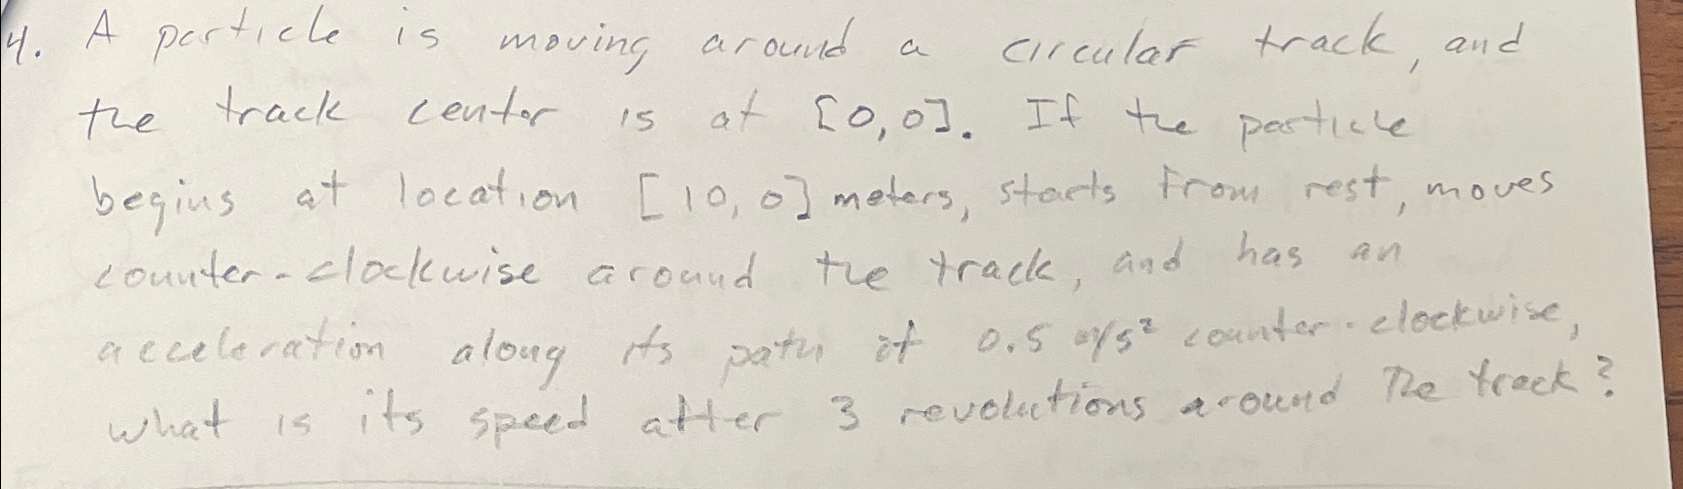 4. A particle is moving around a circular track, and
the track center is at [0,0]. If the particle
begins at location [10,0] meters, starts from rest, moves
counter-clockwise around the track, and has an
acceleration along its path of 0.5 m/s² counter-clockwise,
what is its speed after 3 revolutions around the track?